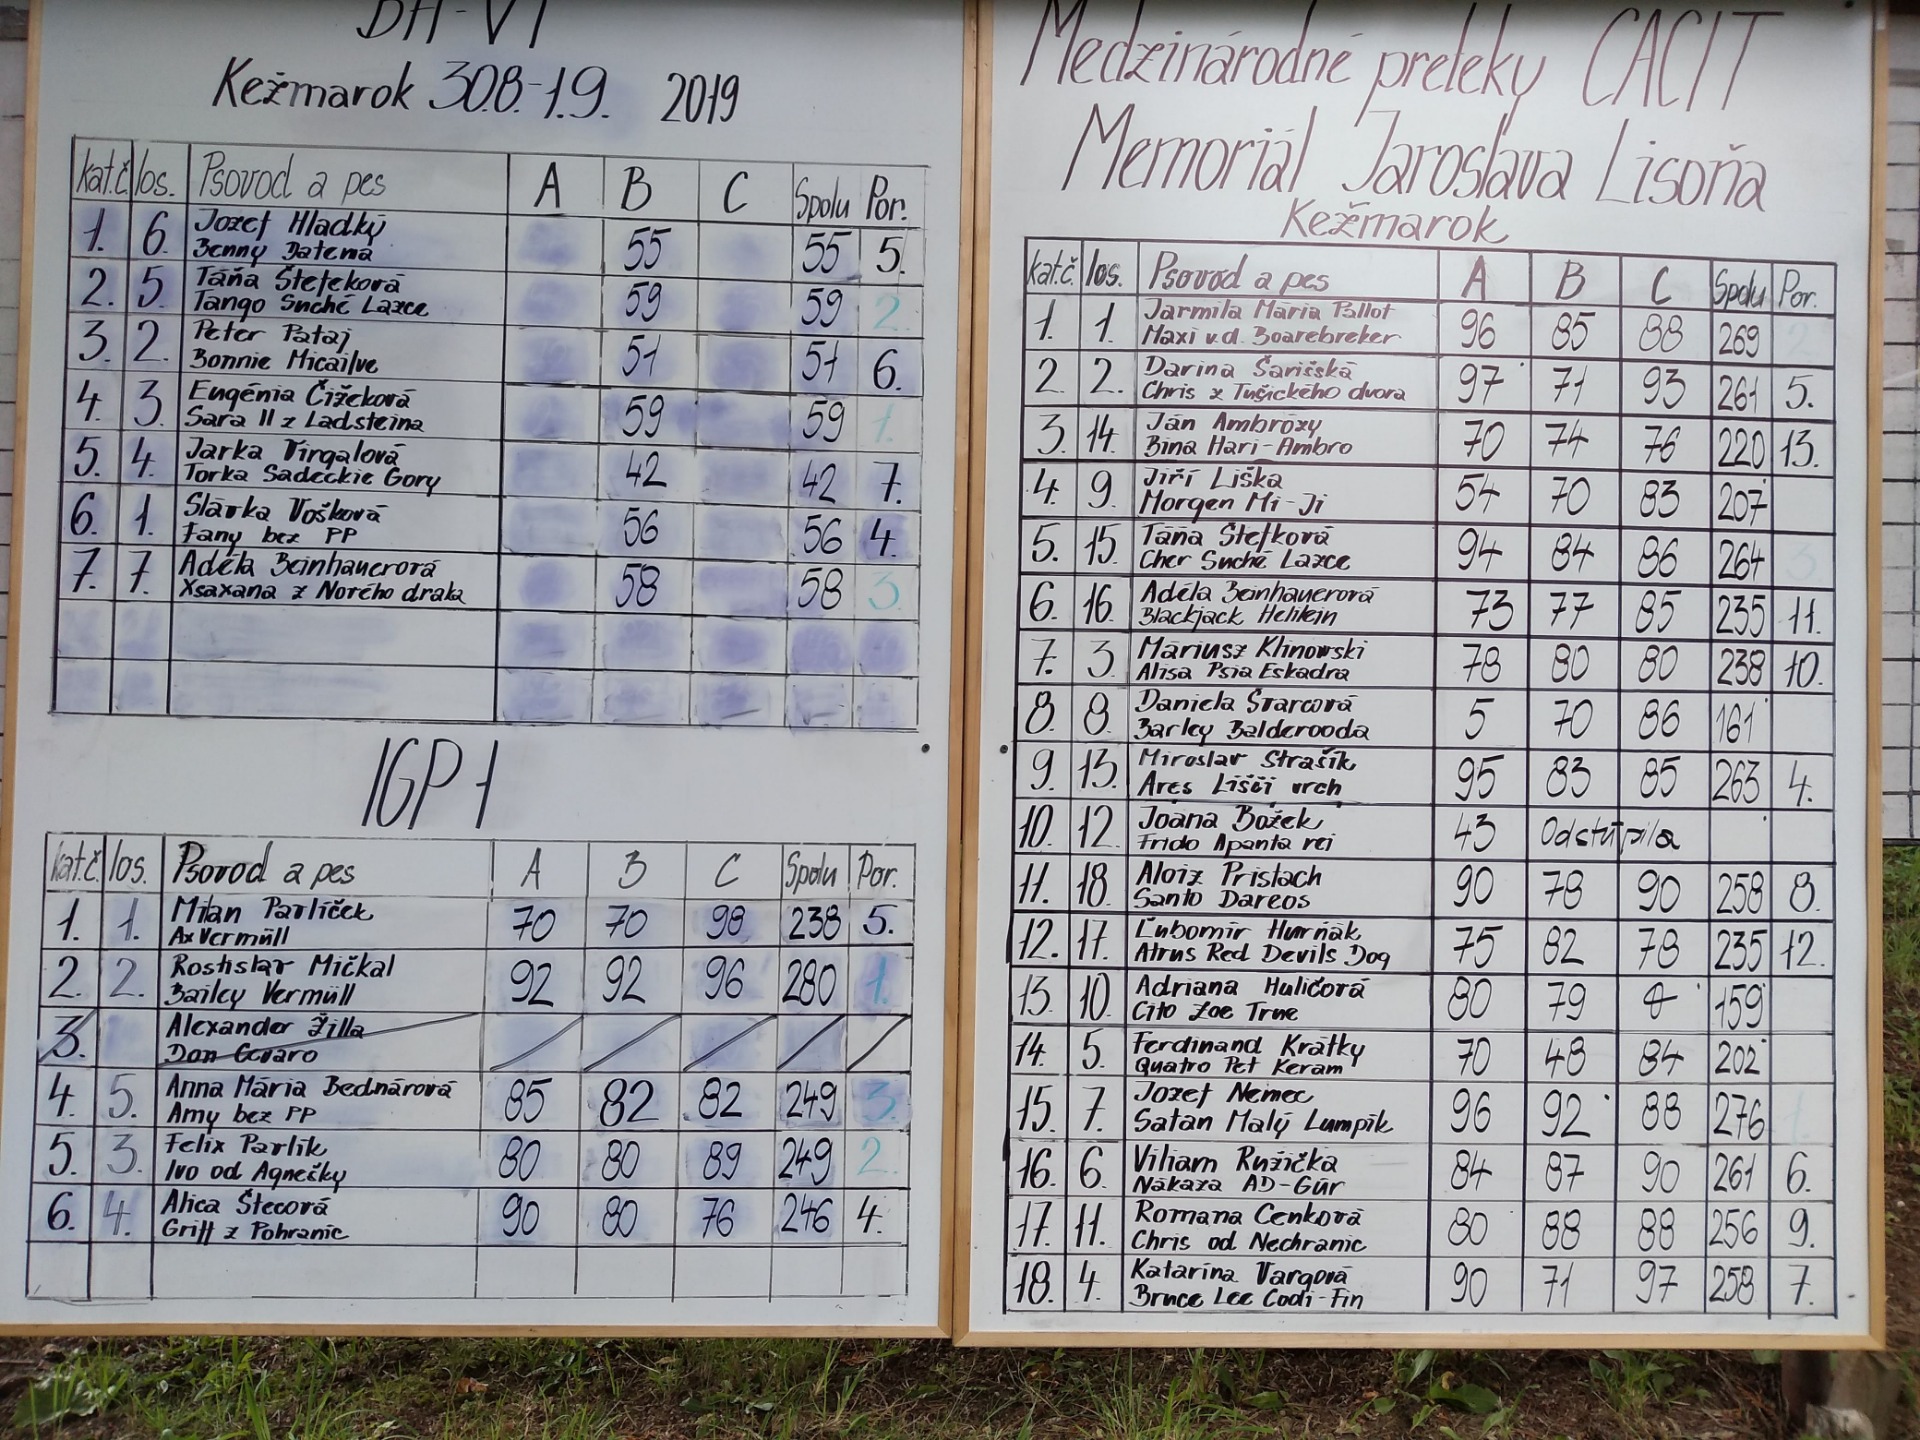 BH-VT
Kežmarok 30.8.-1.9. 2019
kat.č. los. Psovod a pes A B C Spolu Por.
1. 6. Jozef Hladký 55 55 5.
Benny Datema
2. 5. Táňa Šteteková 59 59 2.
Tango Suché Lazce
3. 2. Peter Pataj 51 51 6.
Bonnie Micailve
4. 3. Eugénia Čižeková 59 59 1.
Sara II z Ladsteina
5. 4. Jarka Virgalová 42 42 7.
Torka Sadeckie Gory
6. 1. Slávka Vošková 56 56 4.
Fany bez PP
7. 7. Adéla Beinhauerová 58 58 3.
Xsaxana z Nového draka
IGP 1
kat.č. los. Psovod a pes A B C Spolu Por.
1. 1. Milan Pavlíček 70 70 98 238 5.
Ax Vermüll
2. 2. Rostislav Mičkal 92 92 96 280 1.
Bailey Vermüll
3. Alexander Žilla
Don Gevaro
4. 5. Anna Mária Bednárová 85 82 82 249 3.
Amy bez PP
5. 3. Felix Pavlík 80 80 89 249 2.
Ivo od Agnešky
6. 4. Alica Štecová 90 80 76 246 4.
Griff z Pohranic
Medzinárodné preteky CACIT
Memoriál Jaroslava Lisoňa
Kežmarok
kat.č. los. Psovod a pes A B C Spolu Por.
1. 1. Jarmila Mária Pallot 96 85 88 269 2
Maxi v.d. Boarebreker
2. 2. Darina Šarišská 97 71 93 261 5.
Chris z Tušického dvora
3. 14. Ján Ambrózy 70 74 76 220 13.
Bina Hari-Ambro
4. 9. Jiří Liška 54 70 83 207
Morgen Mi-Ji
5. 15. Táňa Štefková 94 84 86 264 3
Cher Suché Lazce
6. 16. Adéla Beinhauerová 73 77 85 235 11.
Blackjack Helilein
7. 3. Máriusz Klinowski 78 80 80 238 10.
Alisa Psia Eskadra
8. 8. Daniela Švarcová 5 70 86 161
Barley Balderooda
9. 13. Miroslav Strašík 95 83 85 263 4.
Ares Lišči vrch
10. 12. Joana Božek 43 Odstúpila
Frido Apanta rei
11. 18. Aloiz Prislach 90 78 90 258 8.
Santo Dareos
12. 17. Ľubomír Hurňák 75 82 78 235 12.
Atrus Red Devils Dog
13. 10. Adriana Huličová 80 79 0 159
Cito Zoe True
14. 5. Ferdinand Krátky 70 48 84 202
Quatro Pet Keram
15. 7. Jozef Nemec 96 92 88 276 1.
Satan Malý Lumpík
16. 6. Viliam Ružička 84 87 90 261 6.
Nákaza AD-Gúr
17. 11. Romana Cenková 80 88 88 256 9.
Chris od Nechranic
18. 4. Katarína Vargová 90 71 97 258 7.
Bruce Lee Codi-Fin